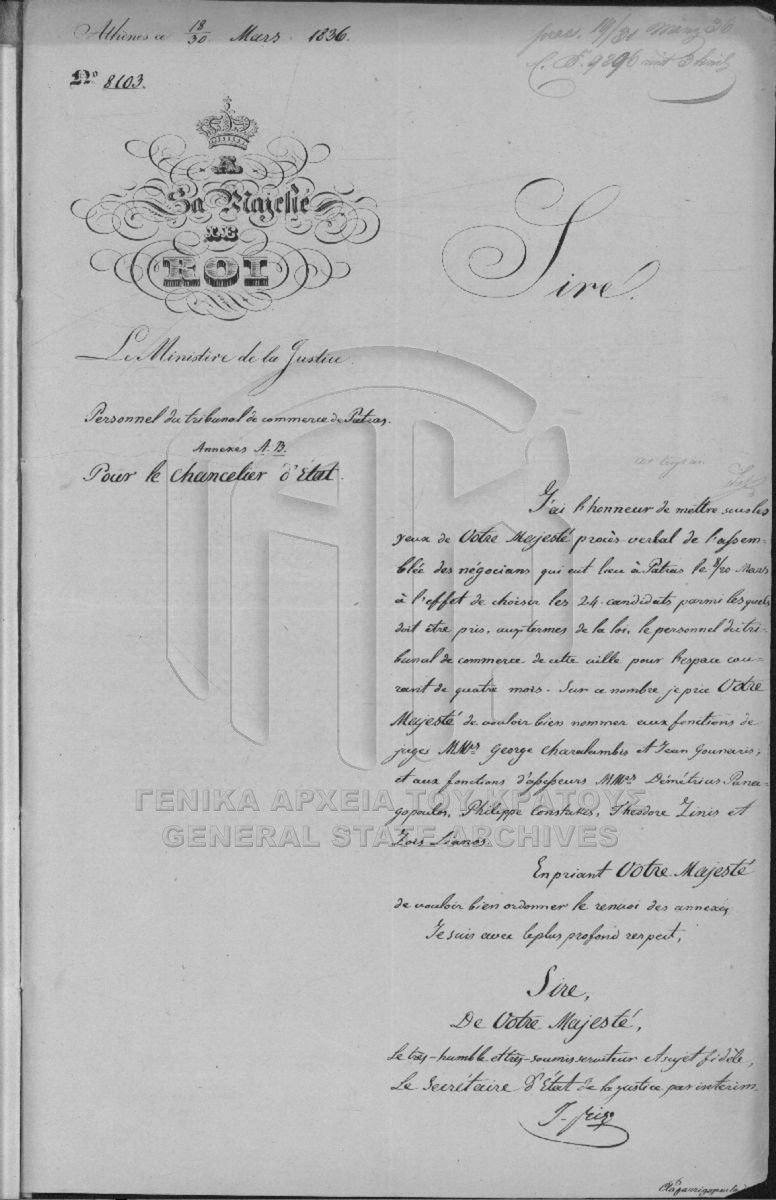 Athènes ce 18/30 Mars 1836.
praes. 19/31 März 36
Nº 8103.
A
Sa Majesté
LE
ROI
Sire.
Le Ministère de la Justice
Personnel du tribunal de commerce de Patras.
Annexes A. B.
Pour le Chancelier d'État.
J'ai l'honneur de mettre sous les
yeux de Votre Majesté procès-verbal de l'assem-
blée des négocians qui eut lieu à Patras le 8/20 Mars
à l'effet de choisir les 24 candidats parmi lesquels
doit être pris, aux termes de la loi, le personnel du tri-
bunal de commerce de cette ville pour l'espace cou-
rant de quatre mois. Sur ce nombre je prie Votre
Majesté de vouloir bien nommer aux fonctions de
juges MMrs George Charalambis et Jean Gounaris,
et aux fonctions d'assesseurs MMrs Démétrius Pana-
gopoulos, Philippe Constakes, Theodore Zinis et
Zois Lianos.
ΓΕΝΙΚΑ ΑΡΧΕΙΑ ΤΟΥ ΚΡΑΤΟΥΣ
GENERAL STATE ARCHIVES
En priant Votre Majesté
de vouloir bien ordonner le renvoi des annexes,
Je suis avec le plus profond respect,
Sire,
De Votre Majesté,
Le très-humble et très-soumis serviteur et sujet fidèle,
Le Secrétaire d'État de la justice par interim